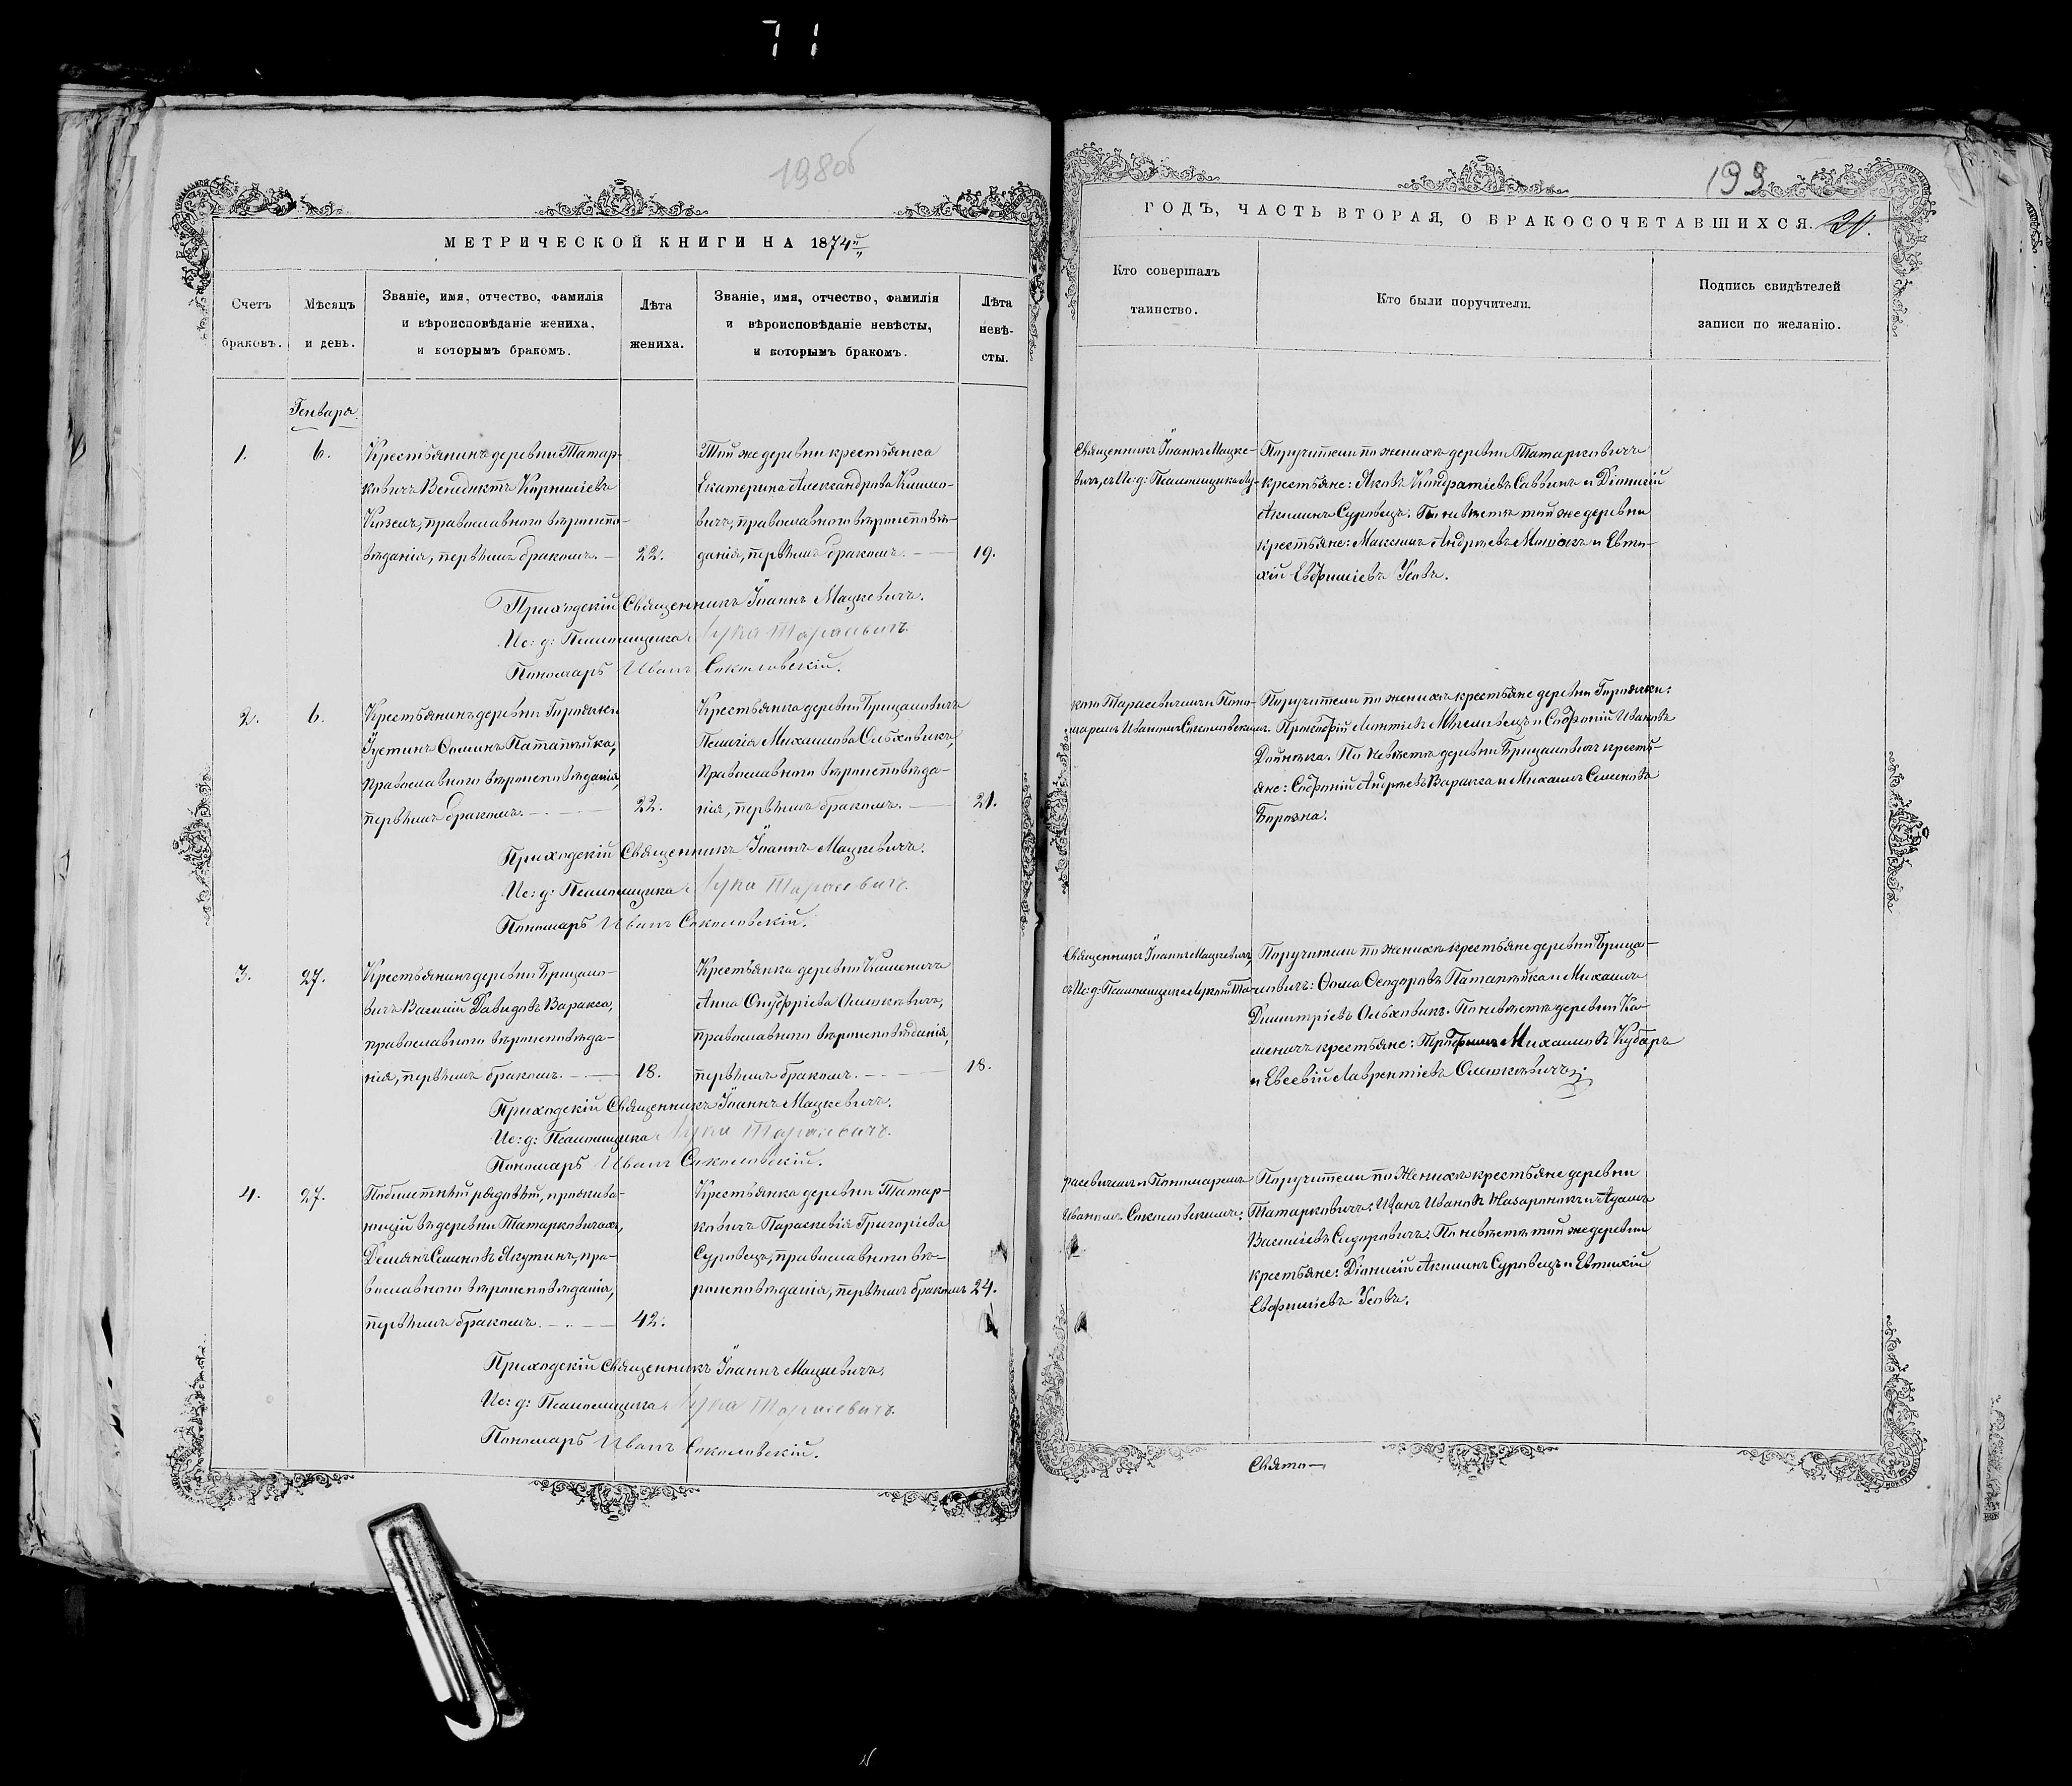 71
198об
МЕТРИЧЕСКОЙ КНИГИ НА 1874й
Счетъ браковъ.
Мѣсяцъ и день.
Званіе, имя, отчество, фамилія
и вѣроисповѣданіе жениха,
и которымъ бракомъ.
Лѣта
жениха.
Званіе, имя, отчество, фамилія
и вѣроисповѣданіе невѣсты,
и которымъ бракомъ.
Лѣта
невѣ-
сты.
Генваря.
1.
6.
Крестьянинъ деревни Татар-
ковичъ Венедиктъ Корнилiевъ
Козелъ, православнаго вѣроиспо-
вѣданія, первымъ бракомъ.
22.
Той же деревни крестьянка
Екатерина Александрова Климо-
вичъ, православнаго вѣроисповѣ-
данія, первымъ бракомъ.
19.
Приходскій Священникъ Іоаннъ Мацкевичъ.
Ис: д: Псаломщика Лука Тарасевичъ.
Пономарь Иванъ Соколовскій.
2.
6.
Крестьянинъ деревни Городьки
Іустинъ Ѳоминъ Патапѣйка,
православнаго вѣроисповѣданія,
первымъ бракомъ.
22.
Крестьянка деревни Брицаловичъ
Пелагія Михаилова Ольховикъ,
православнаго вѣроисповѣда-
нія, первымъ бракомъ.
21.
Приходскій Священникъ Іоаннъ Мацкевичъ.
Ис: д: Псаломщика Лука Тарасевичъ.
Пономарь Иванъ Соколовскій.
3.
27.
Крестьянинъ деревни Брицало-
вичъ Василій Давидовъ Варакса,
православнаго вѣроисповѣда-
нія, первымъ бракомъ.
18.
Крестьянка деревни Каменичъ
Анна Онуфріева Олешкевичъ,
православнаго вѣроисповѣданія,
первымъ бракомъ.
18.
Приходскій Священникъ Іоаннъ Мацкевичъ.
Ис: д: Псаломщика Лука Тарасевичъ.
Пономарь Иванъ Соколовскій.
4.
27.
Побилетный рядовый, прожива-
ющій въ деревни Татарковичахъ,
Демянъ Семеновъ Якутикъ, пра-
вославнаго вѣроисповѣданія,
первымъ бракомъ.
42.
Крестьянка деревни Татар-
ковичъ Параскевія Григоріева
Суровецъ, православнаго вѣ-
роисповѣданія, первымъ бракомъ
24.
Приходскій Священникъ Іоаннъ Мацкевичъ.
Ис: д: Псаломщика Лука Тарасевичъ.
Пономарь Иванъ Соколовскій.
199
ГОДЪ, ЧАСТЬ ВТОРАЯ, О БРАКОСОЧЕТАВШИХСЯ.
Кто совершалъ
таинство.
Кто были поручители.
Подпись свидѣтелей
записи по желанію.
Священникъ Іоаннъ Мацке-
вичъ, съ Ис: д: Псаломщика Лу-
Поручители по женихѣ деревни Татарковичъ
крестьяне: Яковъ Кондратіевъ Саввинъ и Діонисій
Акиминъ Суровецъ. По невѣстѣ той же деревни
крестьяне: Максимъ Андреевъ и Евти-
хій Евфиміевъ Усовъ.
кою Тарасевичемъ и Поно-
маремъ Иваномъ Соколовскимъ.
Поручители по женихѣ крестьяне деревни Городьки:
Прокофій и Софроній Ивановъ
Дойнека. По невѣстѣ деревни Брицаловичъ кресть-
яне: Софроній Андреевъ Варакса и Михаилъ Семеновъ
Священникъ Іоаннъ Мацкевичъ,
съ Ис: д: Псаломщика Лукою Та-
Поручители по женихѣ крестьяне деревни Брица-
ловичъ: Ѳома Ѳеодоровъ Патапѣйка и Михаилъ
Димитріевъ Ольховикъ. По невѣстѣ деревни Ка-
меничъ крестьяне: Трофимъ Михаиловъ Кубаръ
и Евсевій Лаврентіевъ Олешкевичъ.
расевичемъ и Пономаремъ
Иваномъ Соколовскимъ.
Поручители по женихѣ крестьяне деревни
Татарковичъ: Иванъ Ивановъ Назаронокъ и Адамъ
Василіевъ Сидоровичъ. По невѣстѣ той же деревни
крестьяне: Діонисій Акиминъ Суровецъ и Евтихій
Евфиміевъ Усовъ.
Свято-